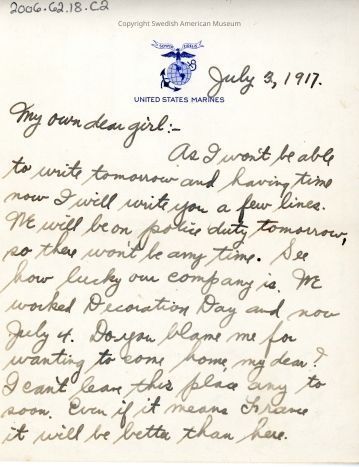 2006.62.18.C2
Copyright Swedish American Museum
SEMPER FIDELIS
UNITED STATES MARINES
July 3, 1917.
My own dear girl:-
As I won't be able
to write tomorrow and having time
now I will write you a few lines.
We will be on police duty tomorrow,
so there won't be any time. See
how lucky our company is. We
worked Decoration Day and now
July 4. Do you blame me for
wanting to come home, my dear?
I can't leave this place any to
soon. Even if it means France
it will be better than here.